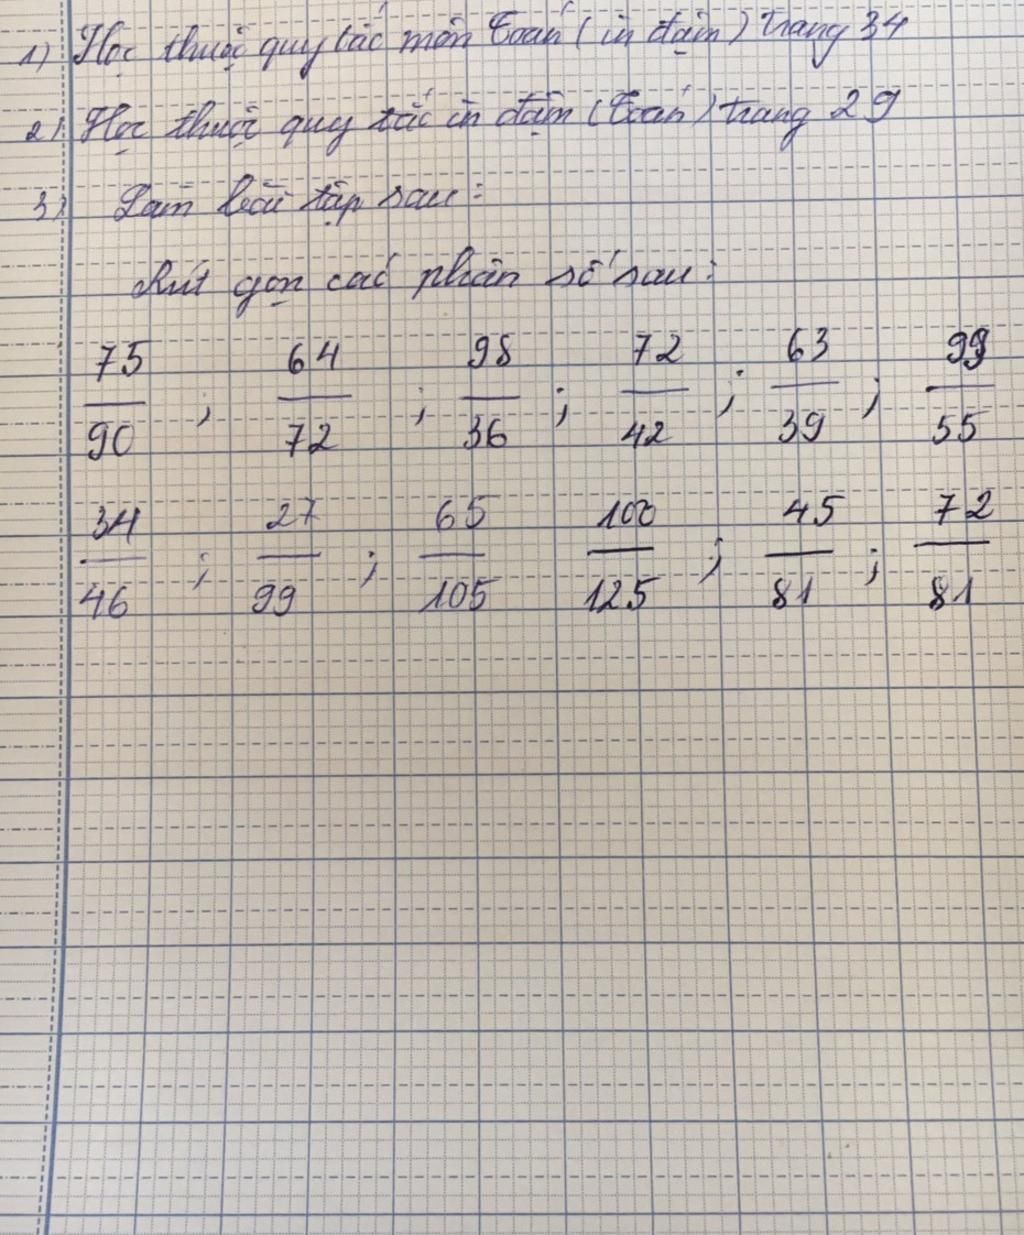 1) Học thuộc quy tắc môn Toán (in đậm) trang 34
2) Học thuộc quy tắc in đậm (Toán) trang 29
3) Làm bài tập sau:
Rút gọn các phân số sau:
75/90 ; 64/72 ; 98/36 ; 72/42 ; 63/39 ; 99/55
34/46 ; 27/99 ; 65/105 100/125 ; 45/81 ; 72/81